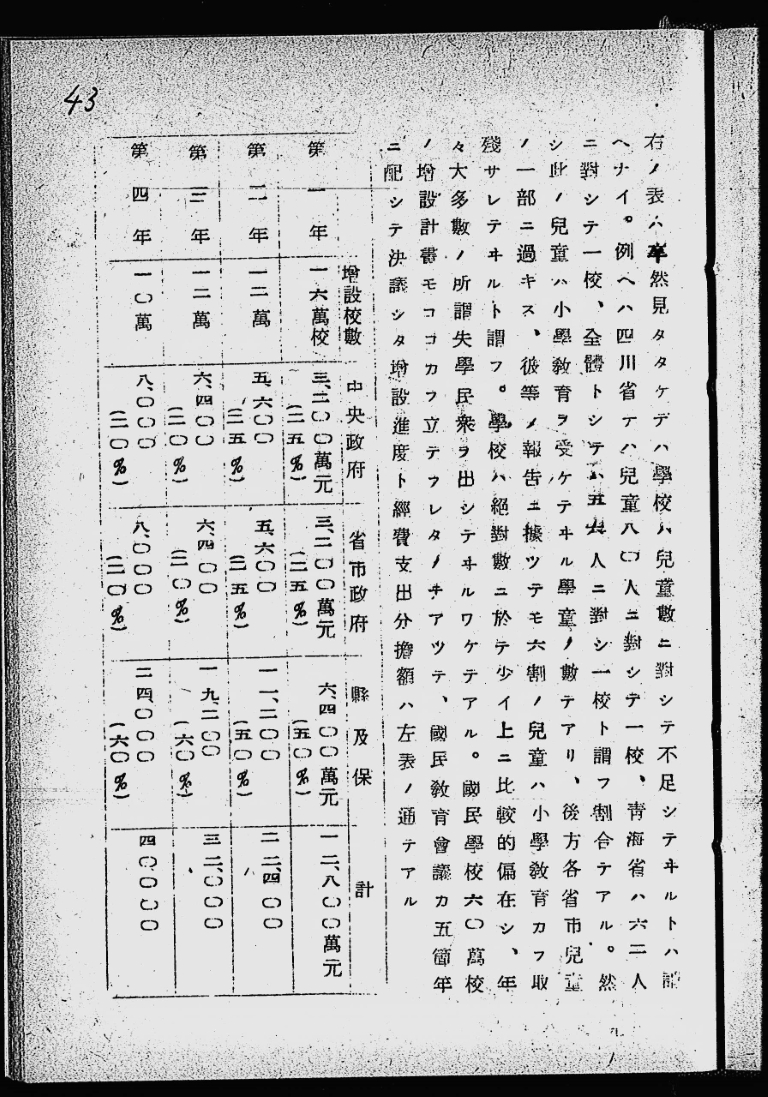 43
右ノ表ハ卒然見タタケデハ學校ハ兒童數ニ對シテ不足シテヰルトハ謂
ヘナイ。例ヘハ四川省テハ兒童八〇人ニ對シテ一校、青海省ハ六二人
ニ對シテ一校、全體トシテハ五 人ニ對シ一校ト謂フ割合テアル。然
シ此ノ兒童ハ小學敎育ヲ受ケテヰル學童ノ數テアリ、後方各省市兒童
ノ一部ニ過キス、彼等ノ報告ニ據ツテモ六割ノ兒童ハ小學敎育カラ取
殘サレテヰルト謂フ。學校ハ絕對數ニ於テ少イ上ニ比較的偏在シ、年
々大多數ノ所謂失學民衆ヲ出シテヰルワケテアル。國民學校六〇萬校
ノ增設計畫モココカラ立テラレタノテアツテ、國民敎育會議カ五箇年
ニ配シテ決議シタ增設進度ト經費支出分擔額ハ左表ノ通テアル
增設校數 中央政府 省市政府 縣及保 計
第一年 一六萬校 三、二〇〇萬元(二五%) 三、二〇〇萬元(二五%) 六、四〇〇萬元(五〇%) 一二、八〇〇萬元
第二年 一二萬 五、六〇〇(二五%) 五、六〇〇(二五%) 一一、二〇〇(五〇%) 二二、四〇〇
第三年 一二萬 六、四〇〇(二〇%) 六、四〇〇(二〇%) 一九、二〇〇(六〇%) 三二、〇〇〇
第四年 一〇萬 八、〇〇〇(二〇%) 八、〇〇〇(二〇%) 二四、〇〇〇(六〇%) 四〇、〇〇〇